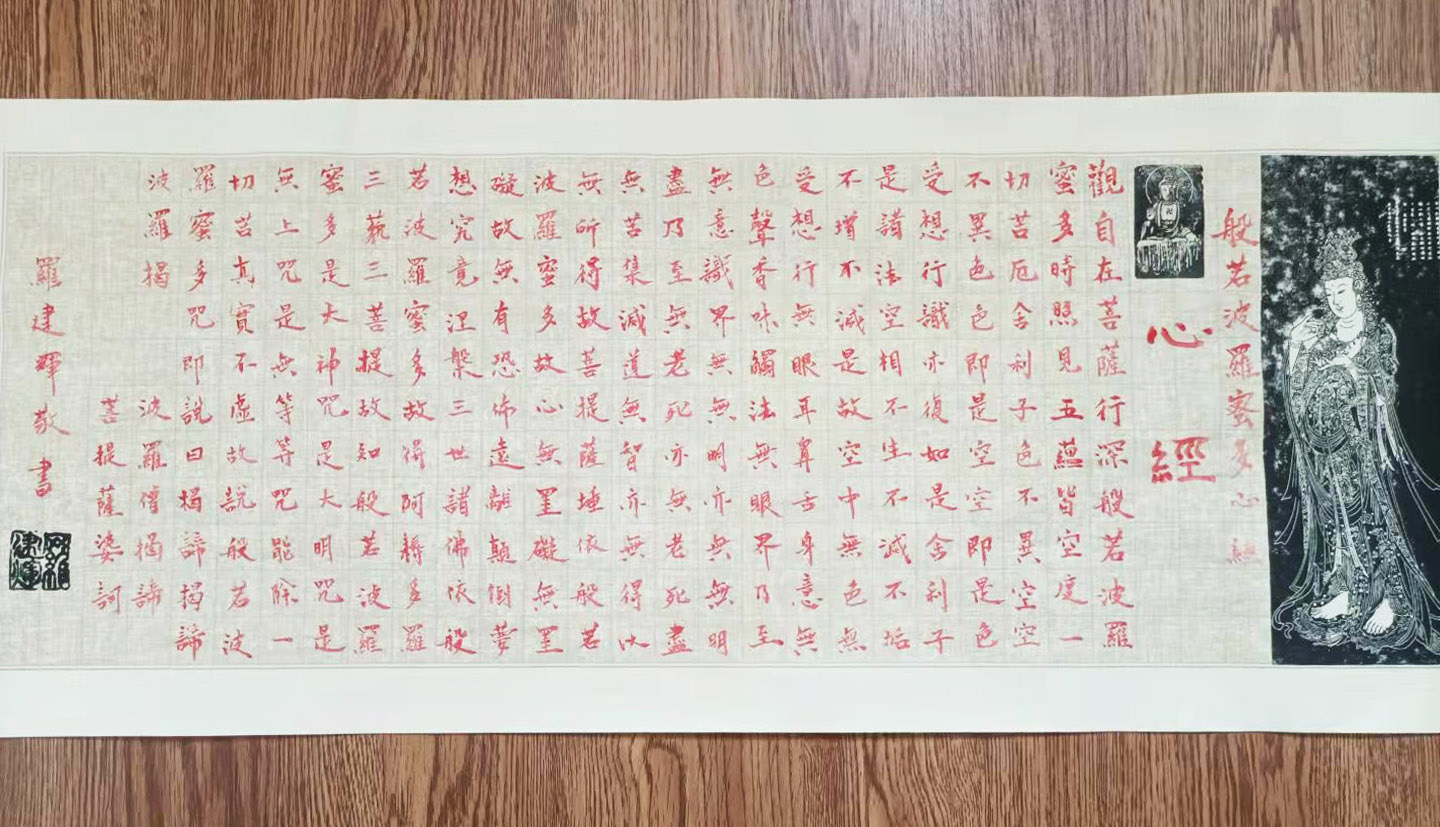 般若波羅蜜多心經
心經
觀自在菩薩行深般若波羅
蜜多時照見五蘊皆空度一
切苦厄舍利子色不異空空
不異色色即是空空即是色
受想行識亦復如是舍利子
是諸法空相不生不滅不垢
不增不減是故空中無色無
受想行無眼耳鼻舌身意無
色聲香味觸法無眼界乃至
無意識界無無明亦無無明
盡乃至無老死亦無老死盡
無苦集滅道無智亦無得以
無所得故菩提薩埵依般若
波羅蜜多故心無罣礙無罣
礙故無有恐怖遠離顛倒夢
想究竟涅槃三世諸佛依般
若波羅蜜多故得阿耨多羅
三藐三菩提故知般若波羅
蜜多是大神咒是大明咒是
無上咒是無等等咒能除一
切苦真實不虛故說般若波
羅蜜多咒即說曰揭諦揭諦
波羅揭 波羅僧揭諦
菩提薩婆訶
羅建輝敬書